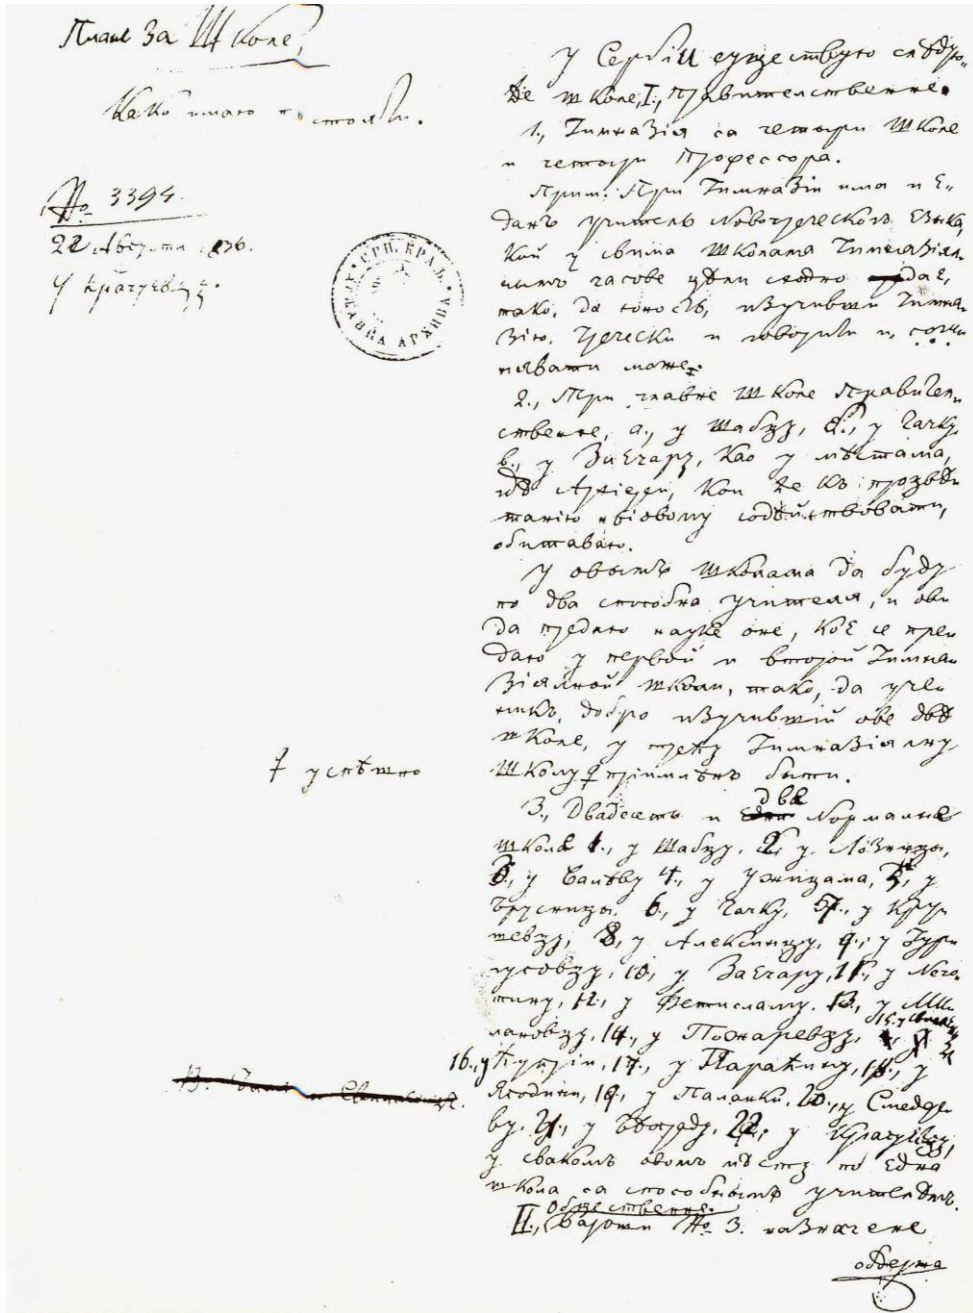 Плане За Школе,
Како имаю постояти.
No 3394.
22 Августа 836.
У Крагуевцу
СРП. КРАЉ.
ДРЖАВНА АРХИВА
У Сербіи существую слѣдую-
ће школе, I., Правителственне.
1., Гимназія са четыри Школе
и четыри Профессора.
Прим: При Гимназіи има и е-
данъ учитель Новогреческогъ езыка,
кои у свима Школама Гимназіял-
нимъ часове
тако, да юность, изучивши Гимна-
зію, Гречески и говорити и, сочи-
нявати може.
2., При главне Школе Правител-
ствене, а., у Шабцу, б., у Чачку,
в., у Заечару, као у мѣстама,
гдѣ Архіереи, кои ће къ просвѣ-
танію содѣйствовати,
обитаваю.
У овымъ школама да буду
по два способна учителя, и ови
да предаю науке оне, кое се пре-
даю у первой и второй Гимна-
зіялной школи, тако, да уче-
никъ, добро изучившій ове двѣ
школе, у трећу Гимназіялну
Школу ꝗ примлѣнъ быти.
ꝗ успѣшно
3., Двадесеть и две Нормалне
школе 1., у Шабцу, 2., у Лозници,
3., у Валѣву 4., у Ужицама, 5., у
Брусници, 6., у Чачку, 7., у Кру-
шевцу, 8., у Алексинцу, 9., у Гург-
усовцу, 10., у Заечару, 11., у Него-
тину, 12., у Фетисламу, 13., у Ми-
лановцу, 14., у Пожаревцу,
15. у
16., у Ћупріи, 17., у Параћину, 18., у
Ягодини, 19., у Паланки, 20., у Смедере-
ву, 21., у Бѣограду, 22., у Крагуевцу,
у свакомъ овомъ мѣсту по една
школа са способнымъ учителѣмъ.
Обществене.
II., No 3. назначене
обдержа